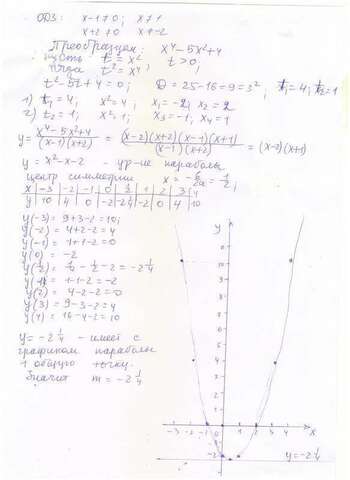 ОДЗ: x-1≠0; x≠1
x+2≠0 x≠-2
Преобразуем: x⁴-5x²+4
пусть t=x² t>0,
тогда t²=x⁴,
t²-5t+4=0; D=25-16=9=3², t₁=4; t₂=1
1) t₁=4, x²=4, x₁=-2, x₂=2
2) t₂=1; x²=1; x₃=-1, x₄=1
y= x⁴-5x²+4/(x-1)(x+2) = (x-2)(x+2)(x-1)(x+1)/(x-1)(x+2) = (x-2)(x+1)
y=x²-x-2 - ур-ие параболы
центр симметрии x=-b/2a=1/2;
x -3 -2 -1 0 1/2 1 2 3 4
y 10 4 0 -2 -2 1/4 -2 0 4 10
y(-3)=9+3-2=10;
y(-2)=4+2-2=4
y(-1)=1+1-2=0
y(0)=-2
y(1/2)=1/4-1/2-2=-2 1/4
y(1)=1-1-2=-2
y(2)=4-2-2=0
y(3)=9-3-2=4
y(4)=16-4-2=10
y=-2 1/4 - имеет с
графиком параболы
1 общую точку.
Значит m=-2 1/4
y
10
-3 -2 -1 0 1 2 3 4 x
-2
y=-2 1/4